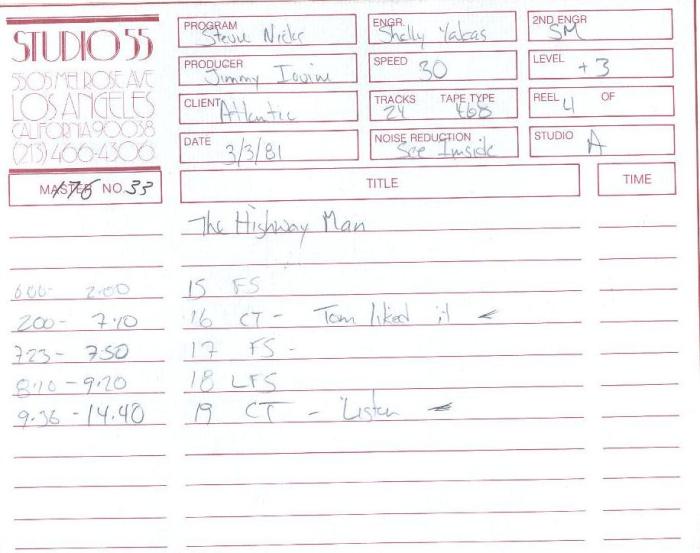 STUDIO 55
5505 MELROSE AVE
LOS ANGELES
CALIFORNIA 90038
(213) 466-4306
PROGRAM Stevie Nicks
ENGR. Shelly Yakas
2ND ENGR SM
PRODUCER Jimmy Iovine
SPEED 30
LEVEL +3
CLIENT Atlantic
TRACKS 24 TAPE TYPE 468
REEL 4 OF
DATE 3/3/81
NOISE REDUCTION See Inside
STUDIO A
MASTER NO. 33
TITLE
TIME
The Highway Man
000- 2:00 15 FS
200- 7:10 16 CT - Tom liked it
723- 750 17 FS -
8:10 - 9:20 18 LFS
9:36 - 14.40 19 CT - Listen